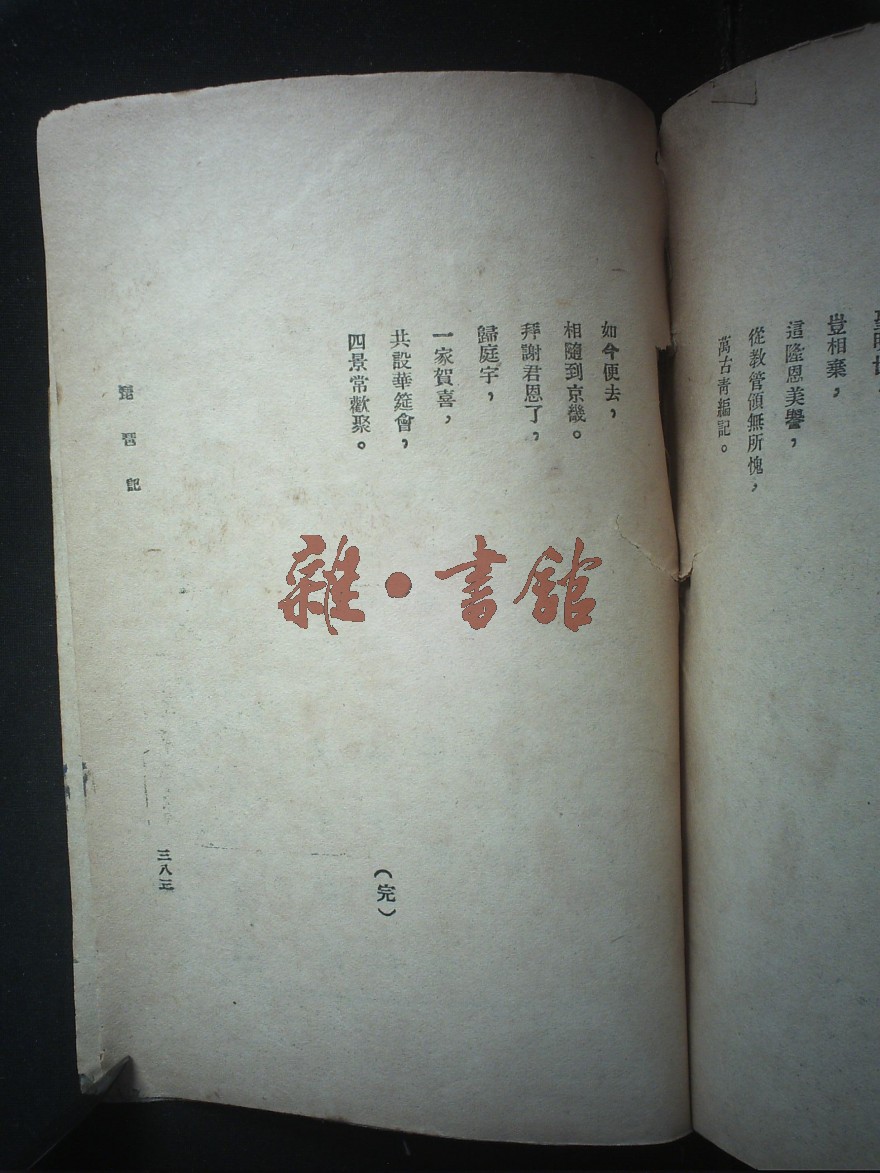 豈相棄，
這隆恩美譽，
從教管領無所愧，
萬古靑編記。
如今便去，
相隨到京畿。
拜謝君恩了，
歸庭宇，
一家賀喜，
共設華筵會，
四景常歡聚。
（完）
琵琶記
三八三
雜·書館